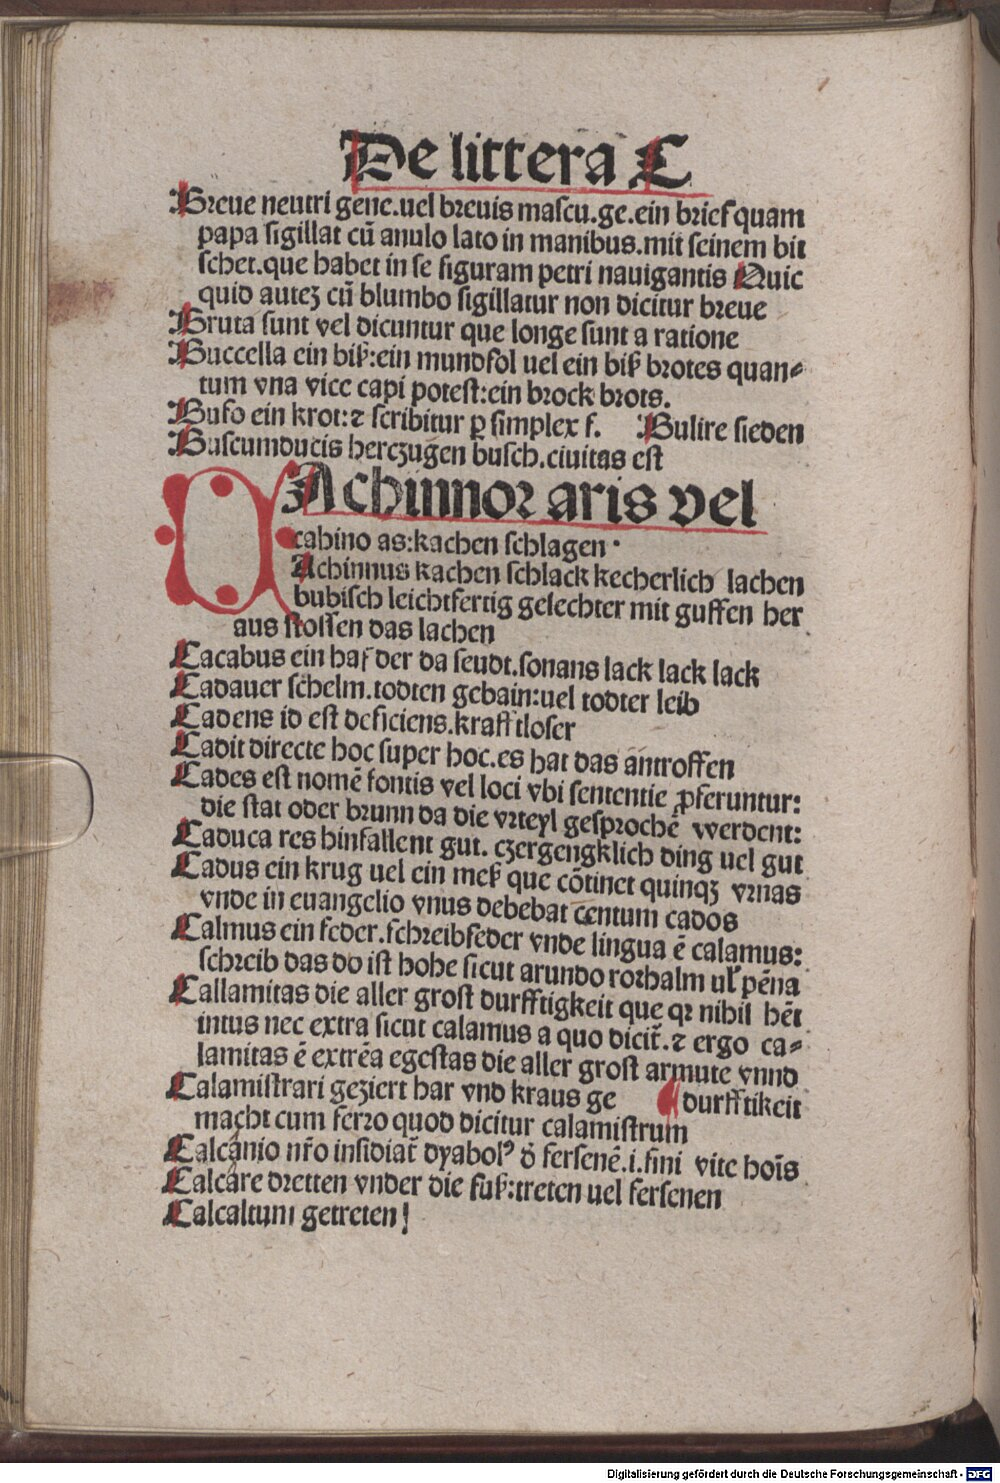 De littera C
Breue neutri gene.uel breuis mascu.ge.ein brief quam
papa sigillat cū anulo lato in manibus.mit seinem bit
schet.que habet in se figuram petri nauigantis Quic
quid autez cū blumbo sigillatur non dicitur breue
Bruta sunt vel dicuntur que longe sunt a ratione
Buccella ein biß:ein mundfol uel ein biß brotes quan⸗
tum vna vice capi potest:ein brock brots.
Bufo ein krot:⁊ scribitur ꝑ simplex f. Bulire sieden
Buscumducis herczugen busch.ciuitas est
Achinnor aris vel
cahino as:kachen schlagen·
Achinnus kachen schlack kecherlich lachen
bubisch leichtfertig gelechter mit guffen her
aus stossen das lachen
Cacabus ein haf der da seudt.sonans lack lack lack
Cadauer schelm.todten gebain:uel todter leib
Cadens id est deficiens.krafftloser
Cadit directe hoc super hoc.es hat das antroffen
Cades est nomē fontis vel loci vbi sententie ꝓferuntur:
die stat oder brunn da die vrteyl gesprochē werdent:
Caduca res hinfallent gut. czergengklich ding uel gut
Cadus ein krug uel ein meß que cōtinet quinqꝫ vrnas
vnde in euangelio vnus debebat centum cados
Calmus ein feder.schreibfeder vnde lingua ē calamus:
schreib das do ist hohe sicut arundo rorhalm ul̛ pēna
Callamitas die aller grost durfftigkeit que qꝛ nihil hēt
intus nec extra sicut calamus a quo dicit̄.⁊ ergo ca⸗
lamitas ē extrēa egestas die aller grost armute vnnd
Calamistrari geziert har vnd kraus ge ¶ durfftikeit
macht cum ferro quod dicitur calamistrum
Calcanio nr̄o insidiat̄ dyabolꝰ ð fersenē.i.fini vite hoīs
Calcare dretten vnder die fuß:treten uel fersenen
Calcaltum getreten!
Digitalisierung gefördert durch die Deutsche Forschungsgemeinschaft - DFG